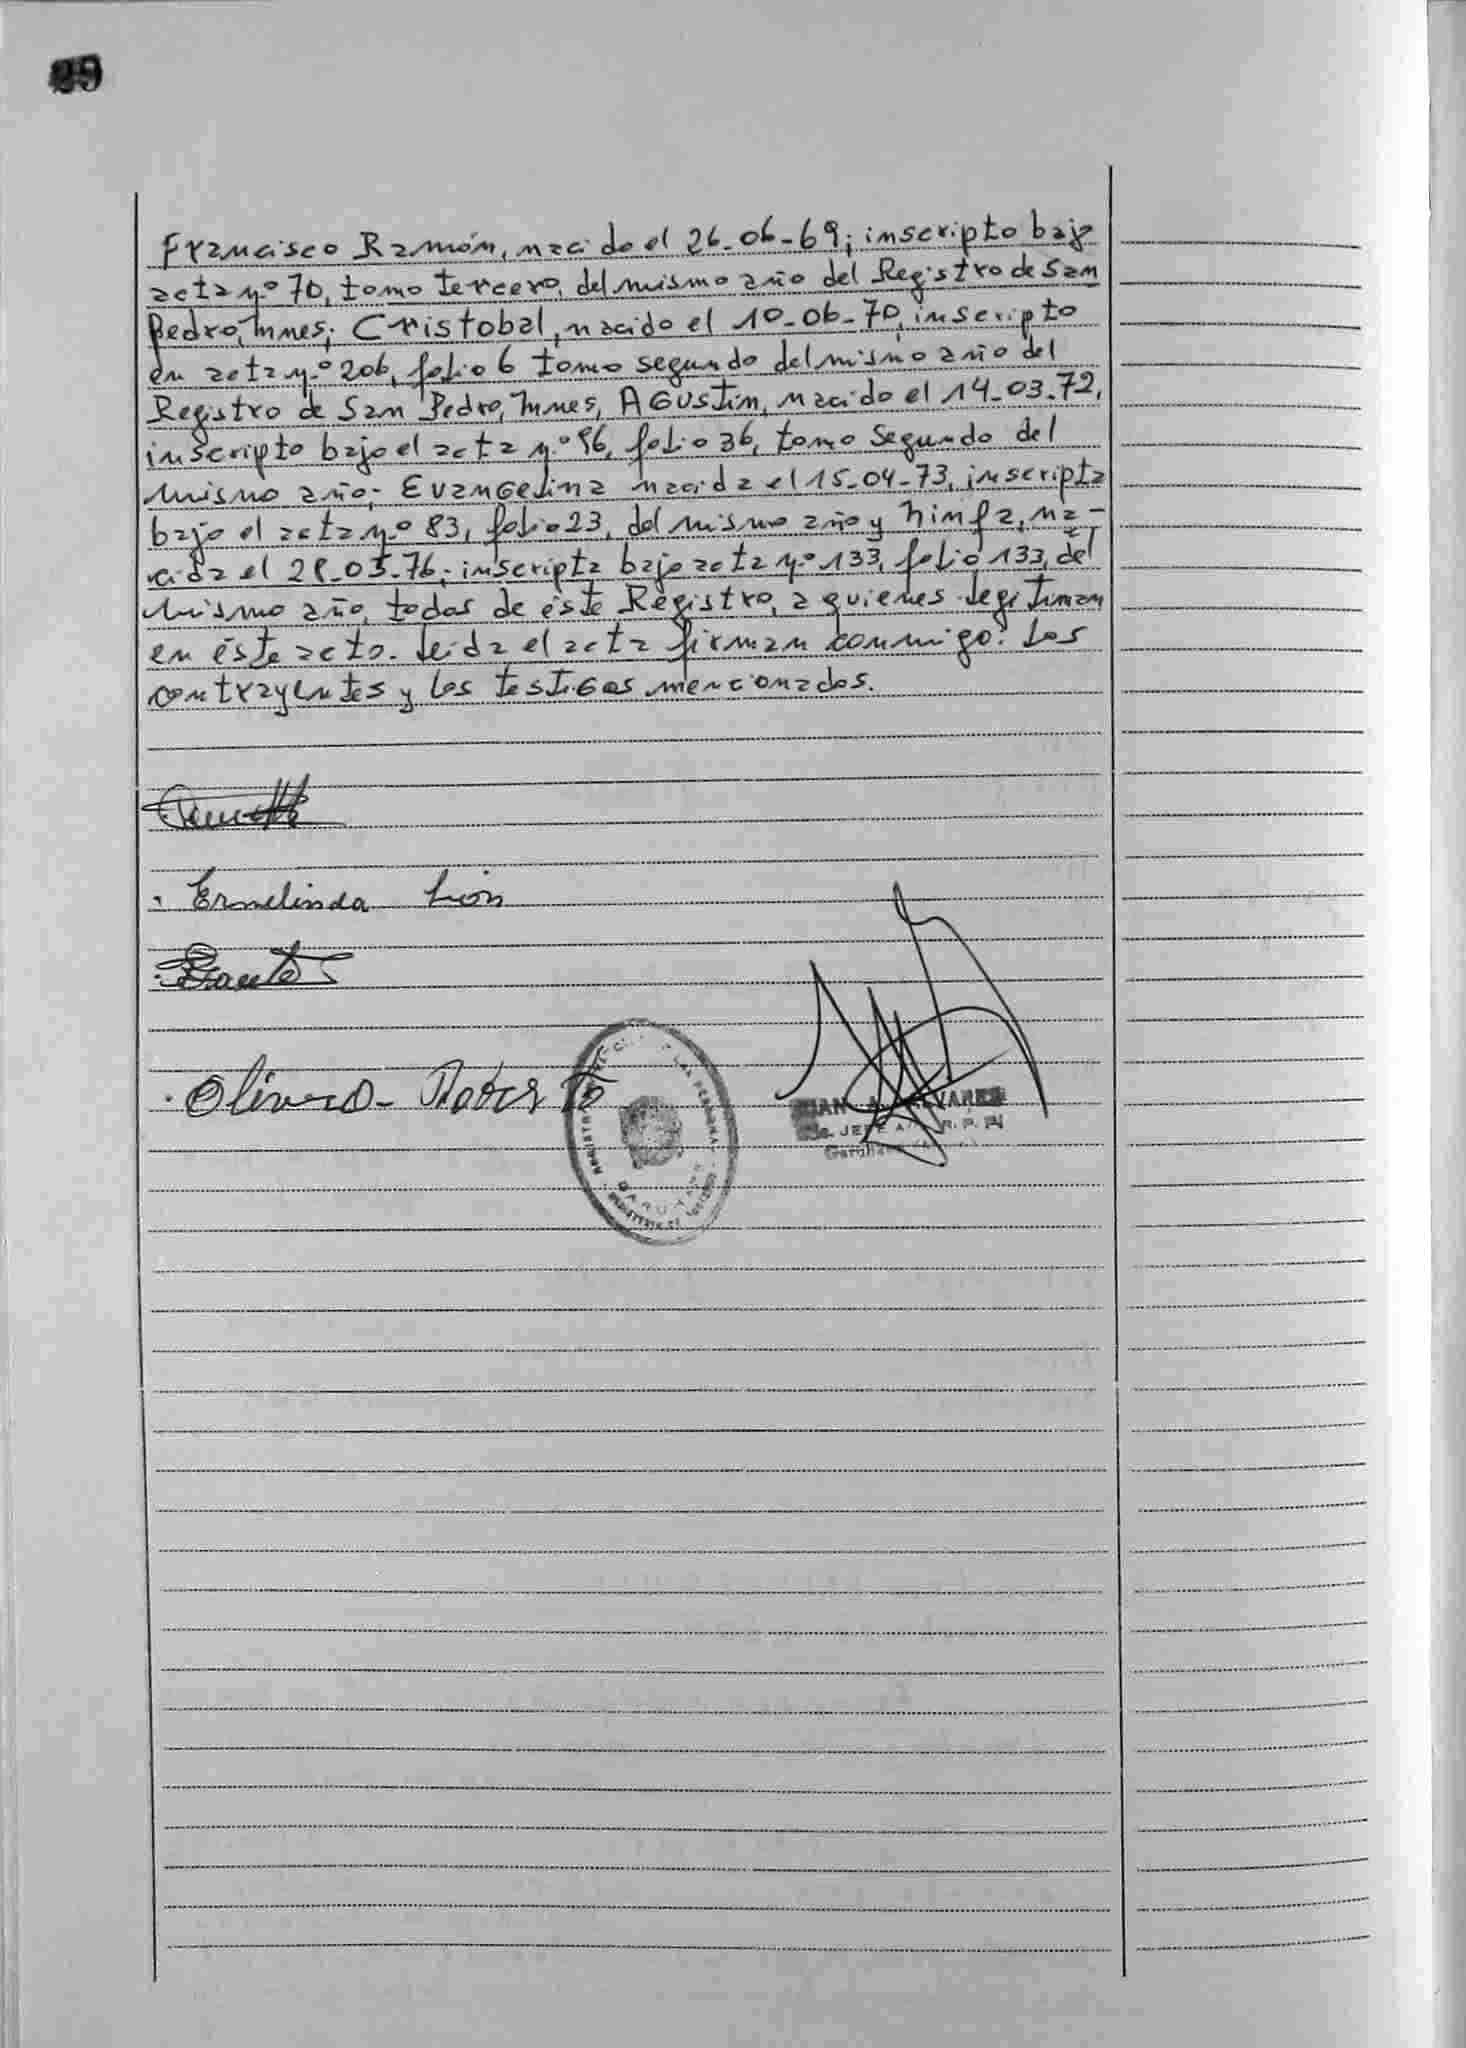 Francisco Ramón, nacido el 26-06-69; inscripto bajo
acta n.º 70, tomo tercero, del mismo año del Registro de San
Pedro, Mnes; Cristobal, nacido el 10-06-70, inscripto
en acta n.º 206, folio 6 tomo segundo del mismo año del
Registro de San Pedro, Mnes, AGUSTIN, nacido el 14-03-72,
inscripto bajo el acta n.º 96, folio 36, tomo segundo del
mismo año; Evangelina nacida el 15-04-73, inscripta
bajo el acta n.º 83, folio 23, del mismo año y Ninfa, na-
cida el 28-05-76; inscripta bajo acta n.º 133, folio 133, del
mismo año, todos de éste Registro, a quienes legitiman
en éste acto. Leída el acta firman conmigo: Los
contrayentes y los testigos mencionados.
Ermelinda
Olivera - Roberto
ALVAREZ
JEFE